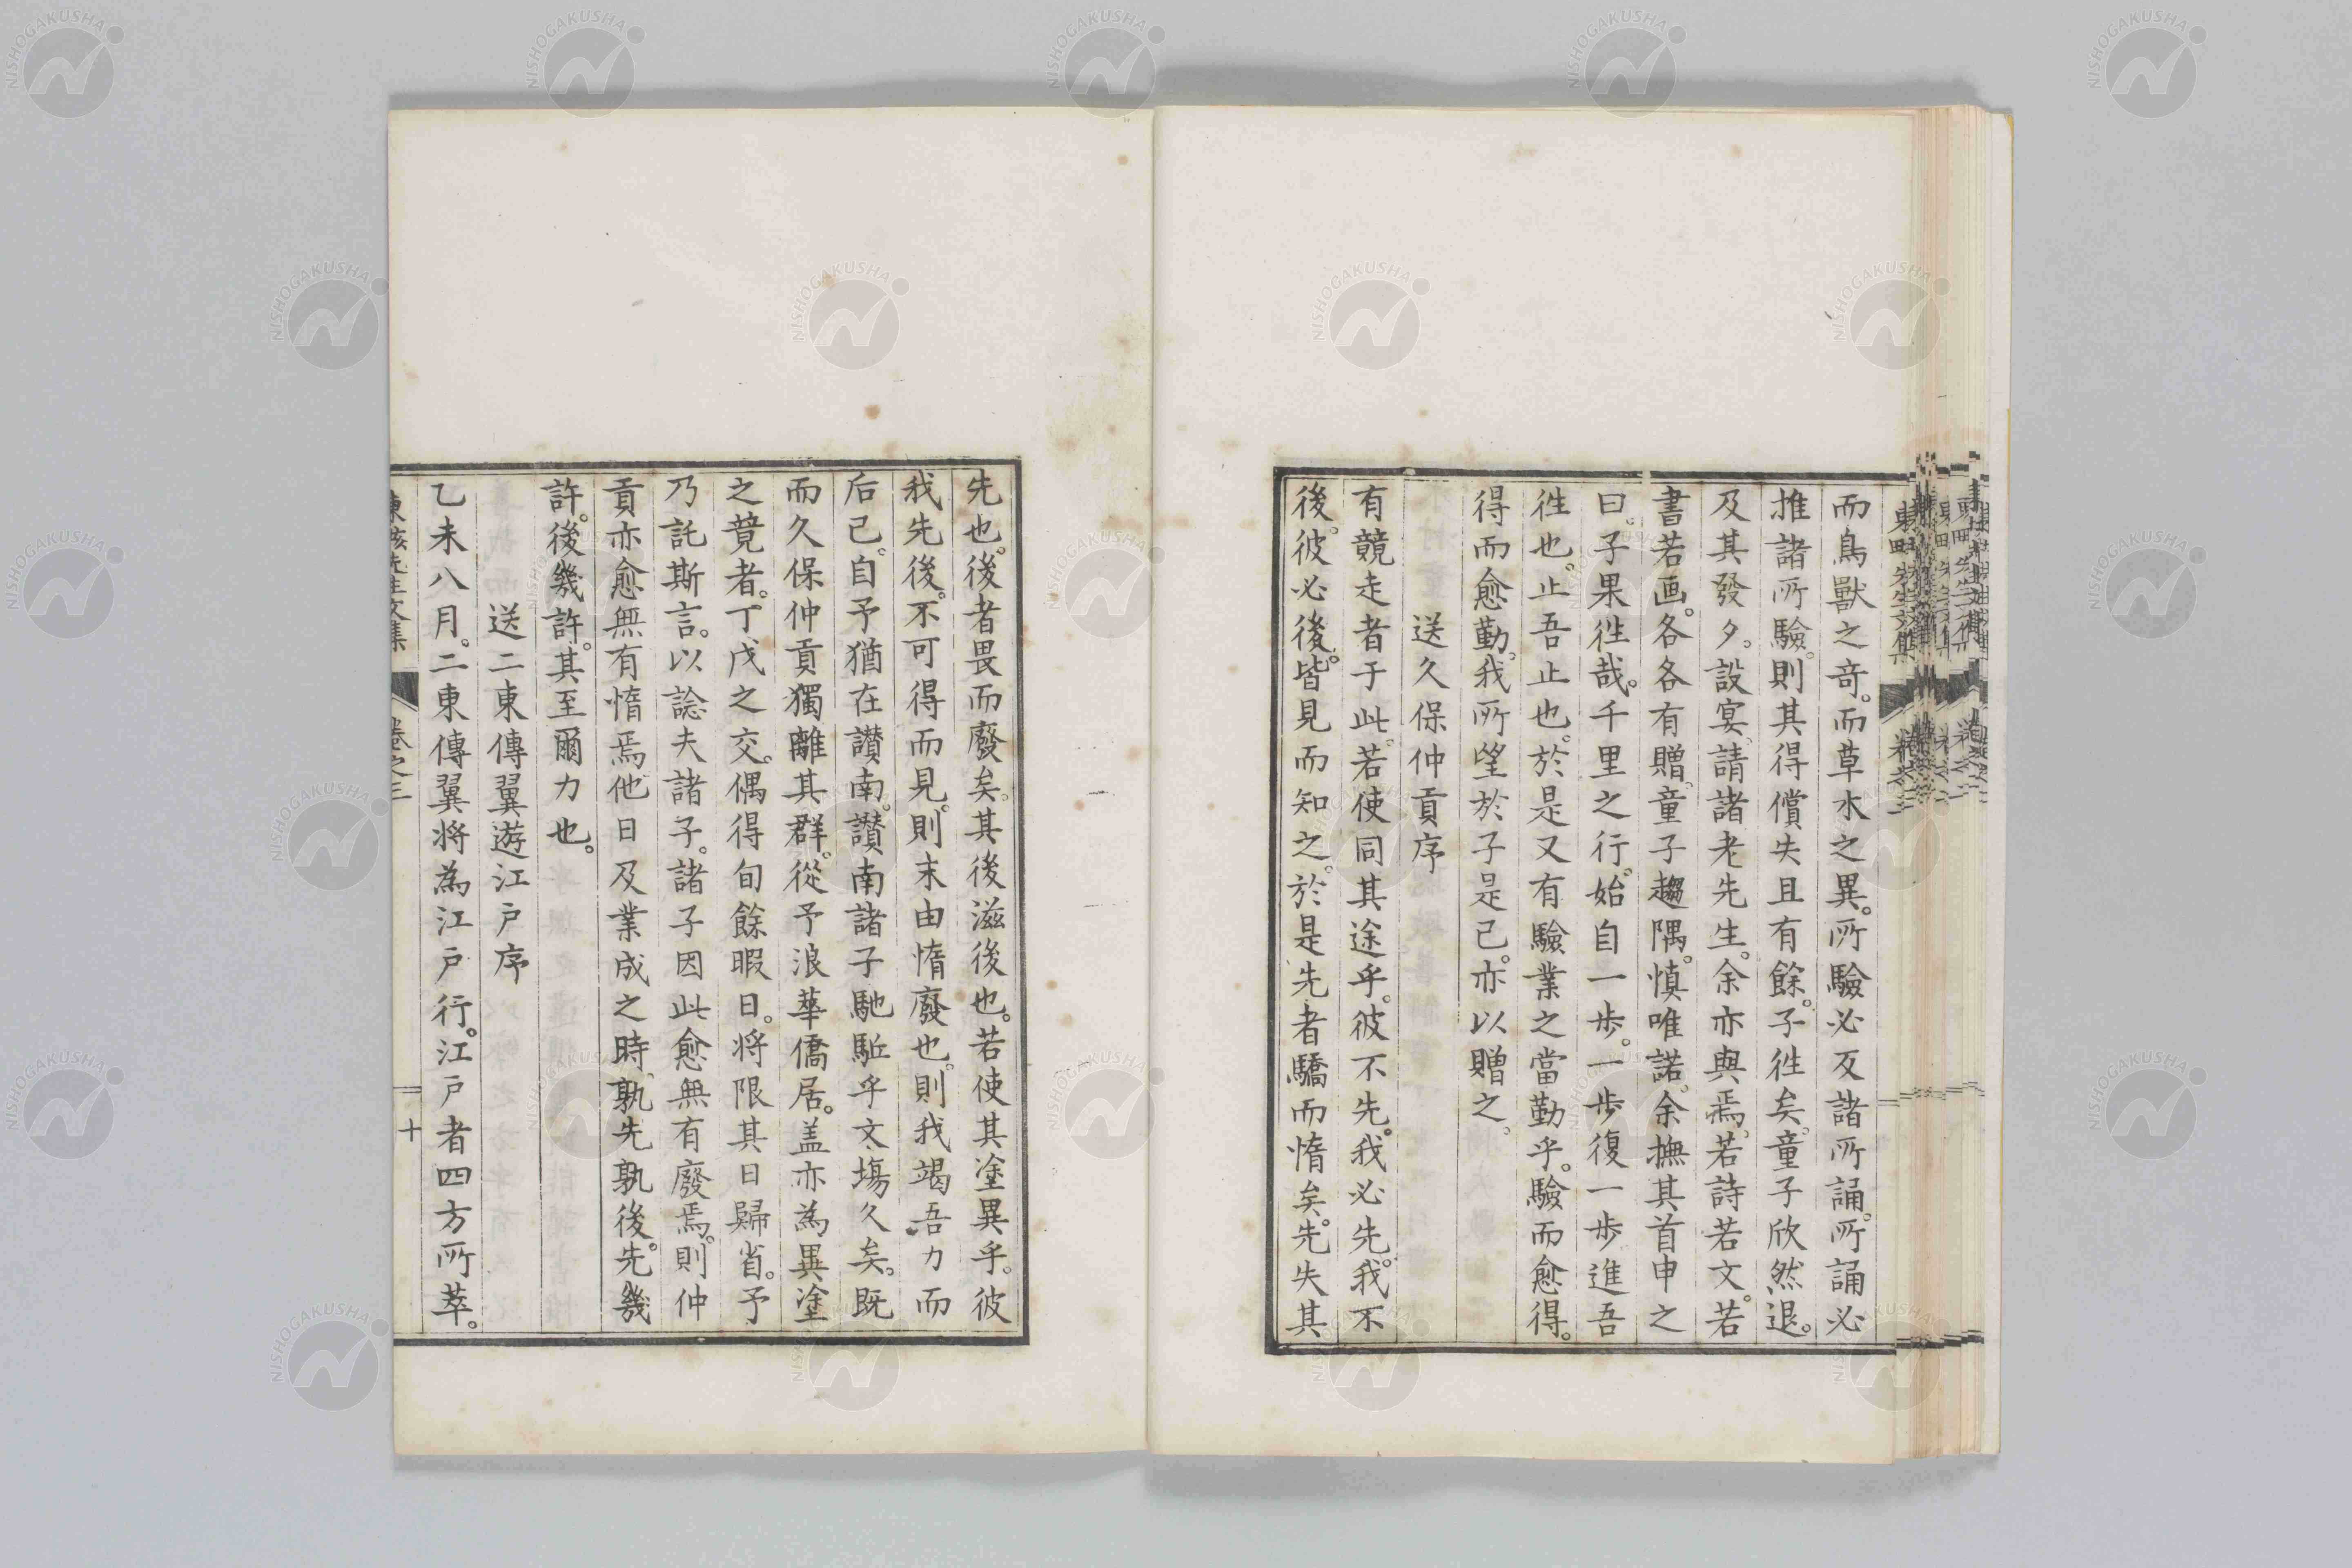 而鳥獸之竒。而草水之異。所驗必反諸所誦。所誦必
推諸所驗。則其得償失且有餘。子徃矣。童子欣然退。
及其發夕。設宴請諸老先生。余亦與焉。若詩若文。若
書若画。各各有贈。童子趨隅。慎唯諾。余撫其首申之
曰。子果徃哉。千里之行。始自一歩。一歩復一歩進吾
徃也。止吾止也。於是又有驗業之當勤乎。驗而愈得。
得而愈勤。我所望於子是已。亦以贈之。
送久保仲貢序
有競走者于此。若使同其途乎。彼不先。我必先。我不
後。彼必後。皆見而知之。於是先者驕而惰矣。先失其
先也。後者畏而廢矣。其後滋後也。若使其塗異乎。彼
我先後。不可得而見。則末由惰廢也。則我竭吾力而
后已。自予猶在讃南。讃南諸子馳駈乎文塲久矣。既
而久保仲貢獨離其群。從予浪華僑居。盖亦為異塗
之競者。丁戊之交。偶得旬餘暇日。将限其日歸省。予
乃託斯言。以諗夫諸子。諸子因此愈無有廢焉。則仲
貢亦愈無有惰焉他日及業成之時。孰先孰後。先幾
許。後幾許。其至爾力也。
送二東傳翼遊江戸序
乙未八月。二東傳翼将為江戸行。江戸者四方所萃。
東畡先生文集
卷之三
十